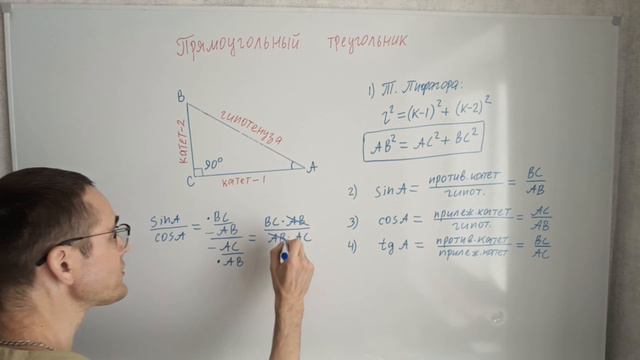 Прямоугольный треугольник
B
гипотенуза
катет-2
90°
C
A
катет-1
1) Т. Пифагора:
г² = (к-1)² + (к-2)²
AB² = AC² + BC²
2) sinA = против.катет / гипот. = BC / AB
3) cosA = прилеж.катет / гипот. = AC / AB
4) tgA = против.катет / прилеж.катет = BC / AC
sinA / cosA = BC / AB / AC / AB = BC · AB / AB · AC